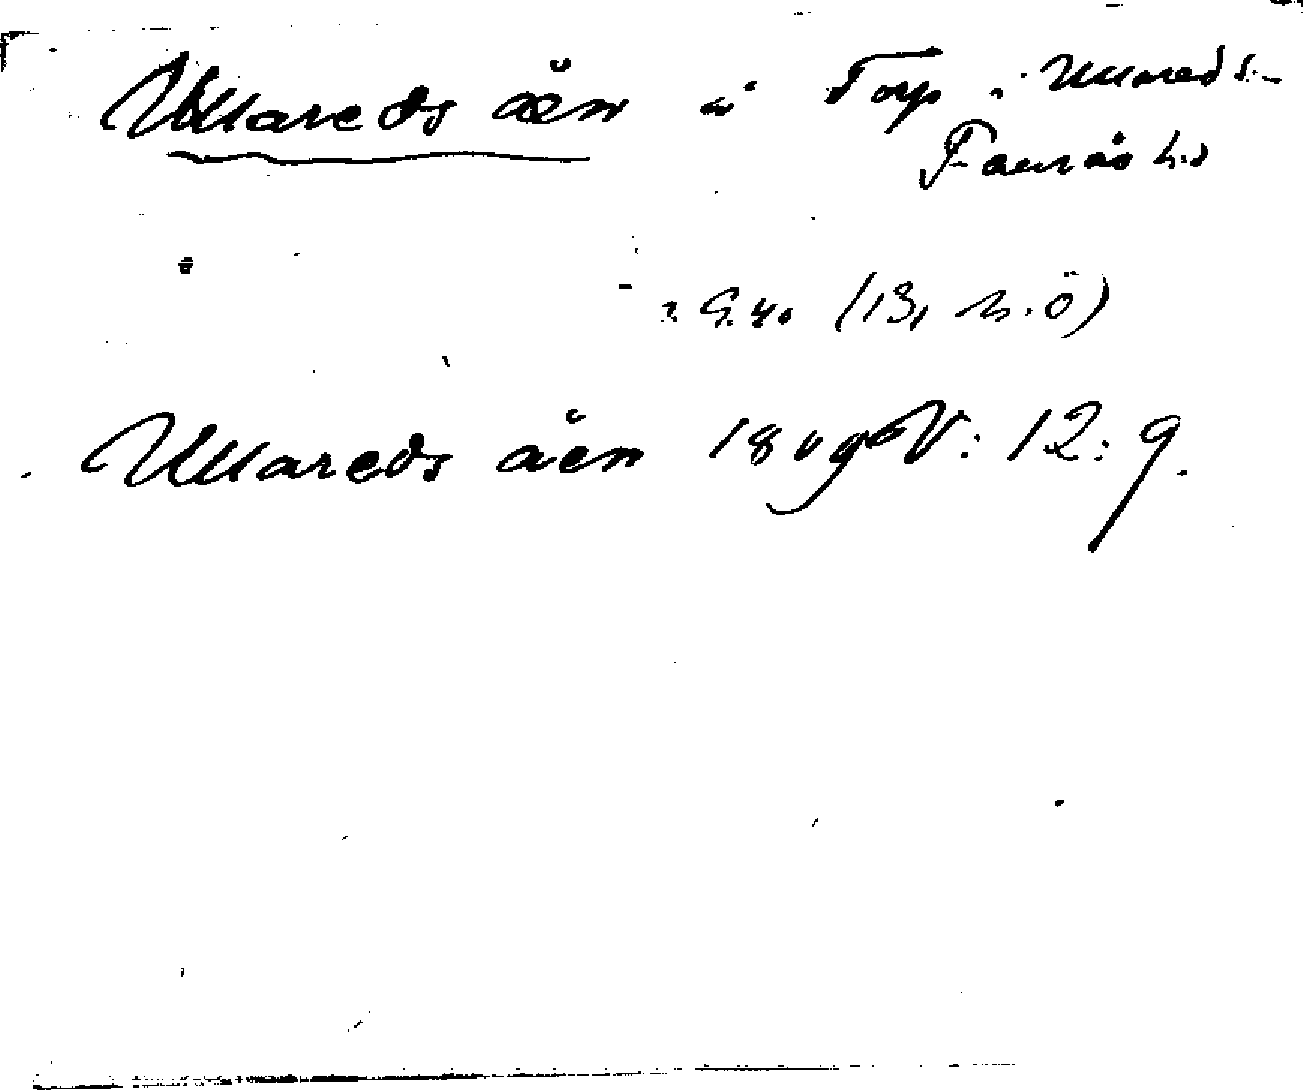 Ullareds åen å Torp i Ullareds s.
Faurås hd
G.K. (13, n.ö)
Ullareds åen 1809 V: 12: 9.